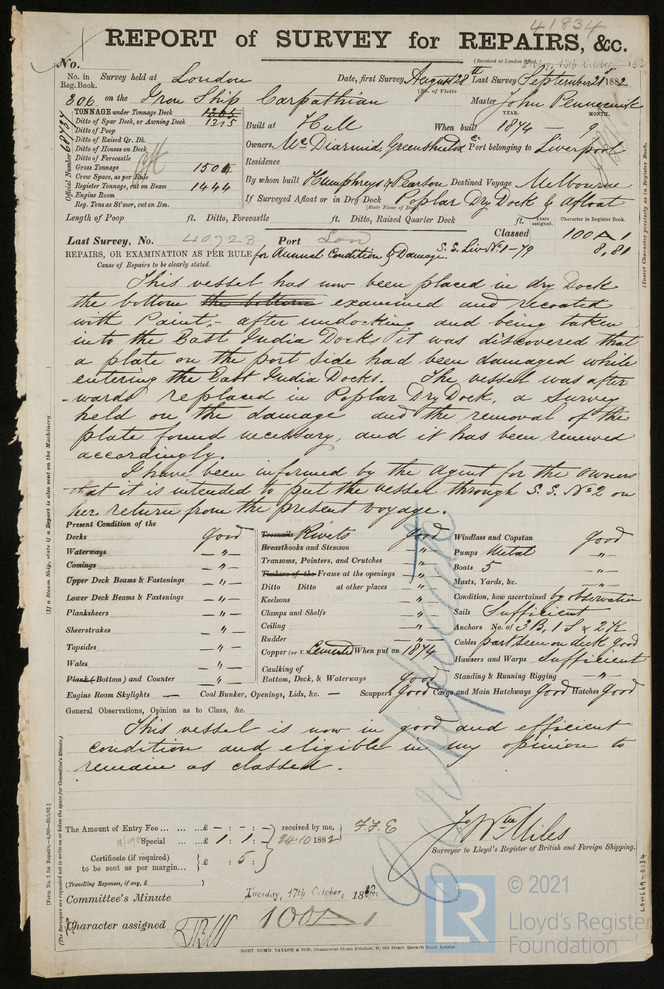 41834
REPORT of SURVEY for REPAIRS, &c.
(Received at London Office, 17th October 1882
No.
No. in Reg. Book. Survey held at London Date, first Survey August 28th Last Survey September 21 1882
(No. of Visits
806 on the Iron Ship Carpathian Master John
TONNAGE under Tonnage Deck
Ditto of Spar Deck, or Awning Deck 1215
Ditto of Poop
Ditto of Raised Qr. Dk.
Ditto of Houses on Deck
Ditto of Forecastle
Gross Tonnage 1504
Crew Space, as per Rule
Register Tonnage, cut on Beam 1444
Engine Room
Reg. Tons as St'mer, cut on Bm.
Official Number
YEAR. MONTH.
Built at Hull When built 1874 - 9
Owners McDiarmid Greenshields & Co Port belonging to Liverpool
Residence
By whom built Humphreys & Pearson Destined Voyage Melbourne
If Surveyed Afloat or in Dry Dock Poplar Dry Dock & Afloat
(State Name of Dock)
Length of Poop ft. Ditto, Forecastle ft. Ditto, Raised Quarter Deck ft. Years assigned. Character in Register Book.
Last Survey, No. 40723 Port Lon Classed 100 A 1
S.S. Liv. No 1-79 8,81
REPAIRS, OR EXAMINATION AS PER RULE for Annual Condition & Damage.
Cause of Repairs to be clearly stated.
This vessel has now been placed in dry Dock
the bottom the bottom examined and recoated
with Paint, - after undocking and being taken
into the East India Docks it was discovered that
a plate on the port side had been damaged while
entering the East India Docks. The vessel was after
-wards replaced in Poplar Dry Dock, a Survey
held on the damage and the removal of the
plate found necessary, and it has been renewed
accordingly.
I have been informed by the Agent for the Owners
that it is intended to put the vessel through S.S. No 2 on
her return from the present voyage.
Present Condition of the
Decks good
Waterways — " —
Comings — " —
Upper Deck Beams & Fastenings — " —
Lower Deck Beams & Fastenings — " —
Planksheers — " —
Sheerstrakes — " —
Topsides — " —
Wales — " —
Plank (Bottom) and Counter — " —
Engine Room Skylights — Coal Bunker, Openings, Lids, &c. — Scuppers Good Cargo and Main Hatchways Good Hatches Good
Treenails Rivets good
Breasthooks and Stemson "
Transoms, Pointers, and Crutches "
Timbers of the Frame at the openings "
Ditto Ditto at other places — " —
Keelsons — " —
Clamps and Shelfs — " —
Ceiling — " —
Rudder — " —
Copper (or Y. Cemented When put on 1874
Caulking of Bottom, Deck, & Waterways good
Windlass and Capstan good
Pumps Metal — " —
Boats 5 — " —
Masts, Yards, &c. — " —
Condition, how ascertained by observation
Sails Sufficient
Anchors No. of 3 B, 1 S & 2 K
Cables part seen on deck good
Hawsers and Warps Sufficient
Standing & Running Rigging — " —
General Observations, Opinion as to Class, &c.
This vessel is now in good and efficient
condition and eligible in my opinion to
remain as classed.
The Amount of Entry Fee ... £ - : - : - received by me, F.F.E
Special ... £ 1 : 1 : 24.10 1882
Certificate (if required) to be sent as per margin... £ : 5 :
(Travelling Expenses, if any, £
Wm Miles
Surveyor to Lloyd's Register of British and Foreign Shipping.
Committee's Minute Tuesday, 17th October, 1882
Character assigned 100 A 1
Certificate
ROBT. EDMD. TAYLOR & SON, Commercial Steam Printers, 19, Old Street, Goswell Road, London.
(If a Steam Ship, state if a Report is also sent on the Machinery.
(The Surveyors are requested not to write on or below the space for Committee's Minute.)
(Insert Character precisely as in Register Book.
LR
© 2021
Lloyd's Register
Foundation